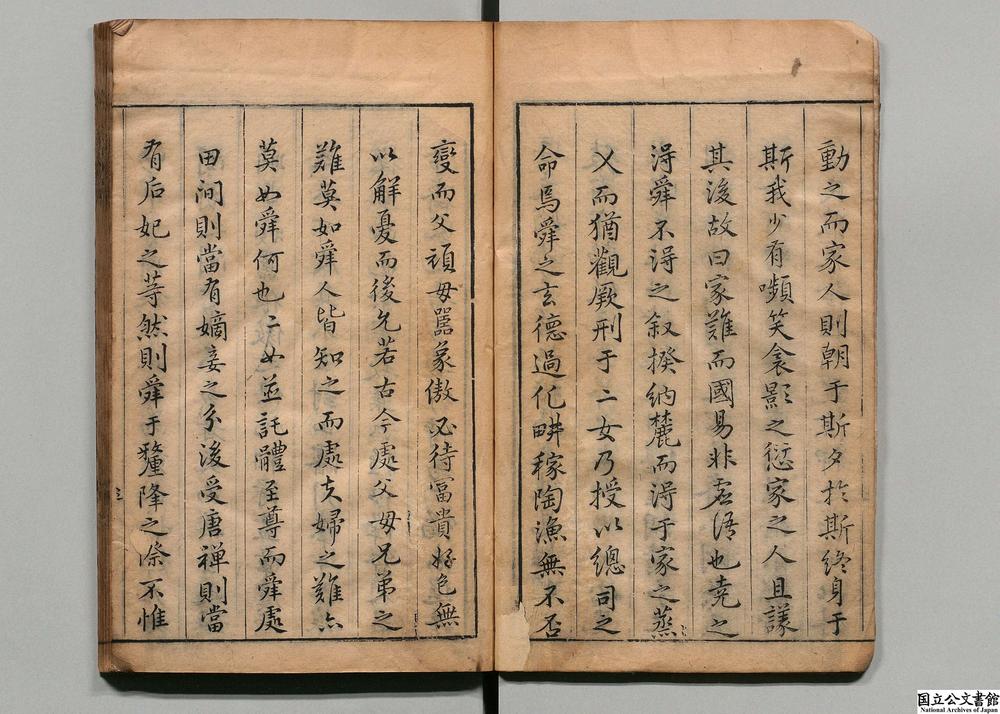 動之而家人則朝于斯夕於斯終身于
斯我少有嚬笑衾影之愆家之人且議
其後故曰家難而國易非虛語也堯之
得舜不得之叙揆納麓而得于家之蒸
乂而猶觀厥刑于二女乃授以總司之
命焉舜之玄德過化畊稼陶漁無不否
變而父頑母嚚象傲必待富貴好色無
以解憂而後允若古今處父母兄弟之
難莫如舜人皆知之而處夫婦之難亦
莫如舜何也二女並託體至尊而舜處
田間則當有嫡妾之分後受唐禅則當
有后妃之等然則舜于釐降之際不惟
国立公文書館
National Archives of Japan